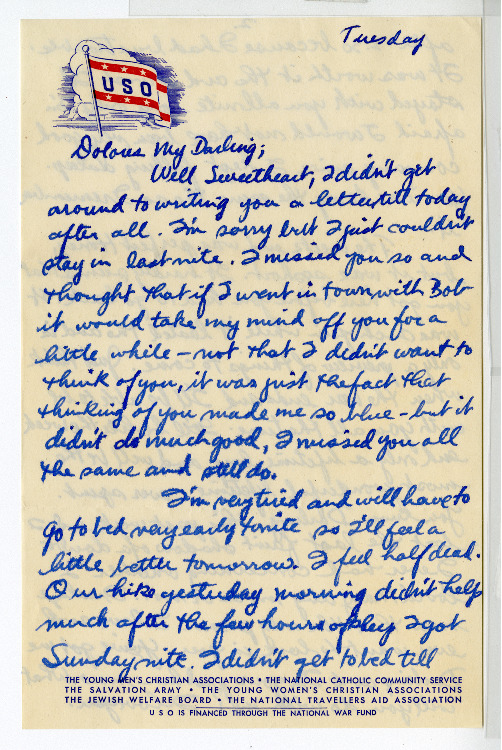 Tuesday
USO
Dolores My Darling;
Well Sweetheart, I didn't get
around to writing you a letter till today
after all. I'm sorry but I just couldn't
stay in last nite. I missed you so and
thought that if I went in town with Bob
it would take my mind off you for a
little while – not that I didn't want to
think of you, it was just the fact that
thinking of you made me so blue – but it
didn't do much good, I missed you all
the same and still do.
I'm very tired and will have to
go to bed very early tonite so I'll feel a
little better tomorrow. I feel half dead.
Our hike yesterday morning didn't help
much after the few hours of sleep I got
Sunday nite. I didn't get to bed till
THE YOUNG MEN'S CHRISTIAN ASSOCIATIONS • THE NATIONAL CATHOLIC COMMUNITY SERVICE
THE SALVATION ARMY • THE YOUNG WOMEN'S CHRISTIAN ASSOCIATIONS
THE JEWISH WELFARE BOARD • THE NATIONAL TRAVELLERS AID ASSOCIATION
USO IS FINANCED THROUGH THE NATIONAL WAR FUND